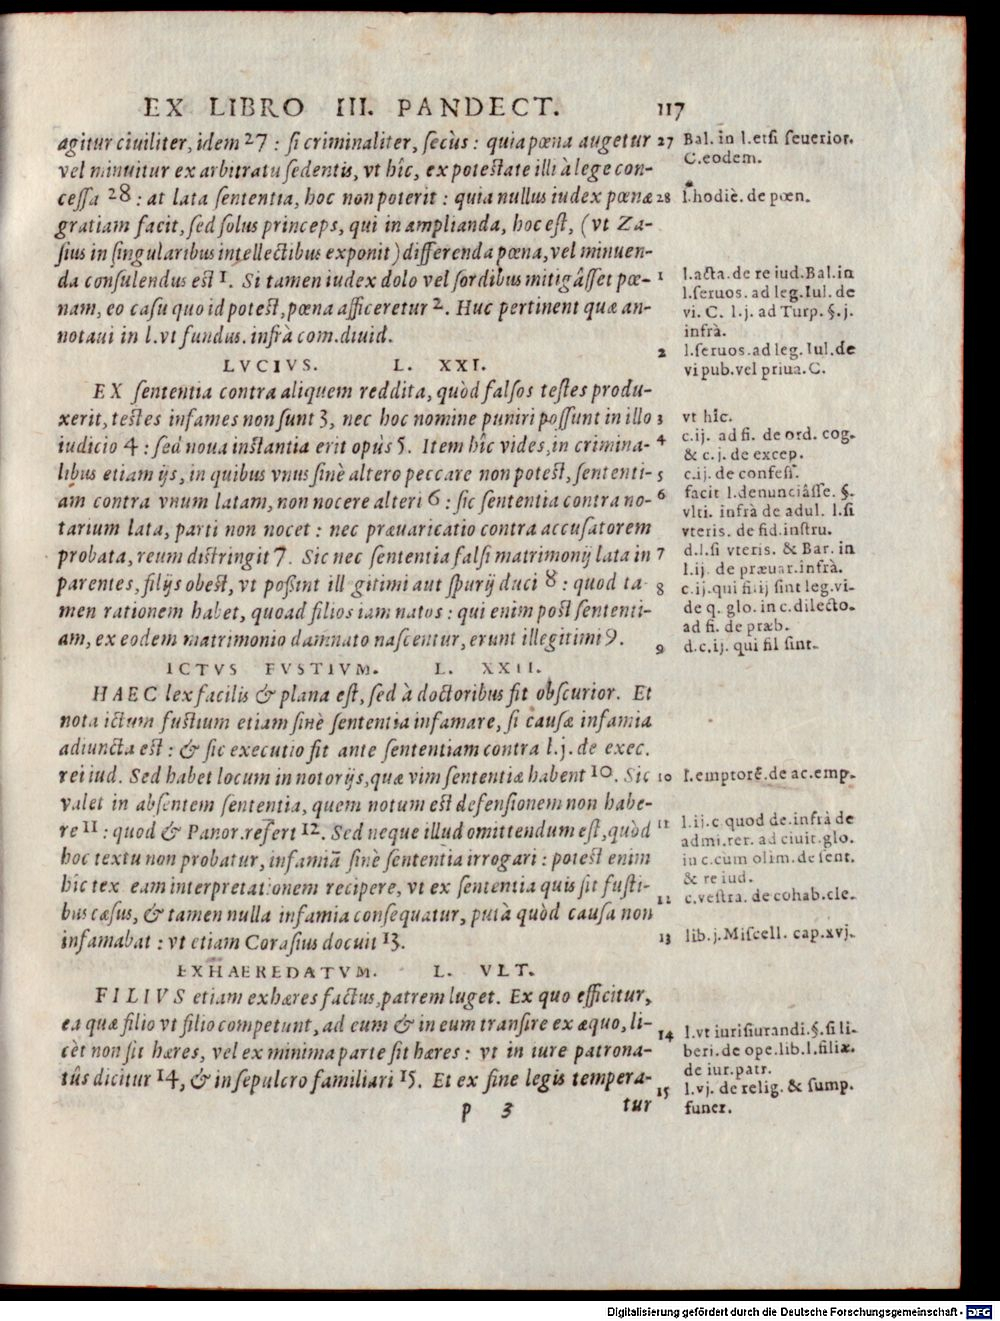 EX LIBRO III. PANDECT. 117
agitur ciuiliter, idem 27 : si criminaliter, secùs : quia pœna augetur
vel minuitur ex arbitratu sedentis, vt hîc, ex potestate illi à lege con-
cessa 28 : at lata sententia, hoc non poterit : quia nullus iudex pœnæ
gratiam facit, sed solus princeps, qui in amplianda, hoc est, (vt Za-
sius in singularibus intellectibus exponit) differenda pœna, vel minuen-
da consulendus est 1. Si tamen iudex dolo vel sordibus mitigâsset pœ-
nam, eo casu quo id potest, pœna afficeretur 2. Huc pertinent quæ an-
notaui in l.vt fundus. infrà com.diuid.
LVCIVS. L. XXI.
EX sententia contra aliquem reddita, quòd falsos testes produ-
xerit, testes infames non sunt 3, nec hoc nomine puniri possunt in illo
iudicio 4 : sed noua instantia erit opùs 5. Item hîc vides, in crimina-
libus etiam ijs, in quibus vnus sinè altero peccare non potest, sententi-
am contra vnum latam, non nocere alteri 6 : sic sententia contra no-
tarium lata, parti non nocet : nec præuaricatio contra accusatorem
probata, reum distringit 7. Sic nec sententia falsi matrimonij lata in
parentes, filijs obest, vt possint ill gitimi aut spurij duci 8 : quod ta-
men rationem habet, quoad filios iam natos : qui enim post sententi-
am, ex eodem matrimonio damnato nascentur, erunt illegitimi 9.
ICTVS FVSTIVM. L. XXII.
HAEC lex facilis & plana est, sed à doctoribus fit obscurior. Et
nota ictum fustium etiam sinè sententia infamare, si causæ infamia
adiuncta est : & sic executio fit ante sententiam contra l.j. de exec.
rei iud. Sed habet locum in notorijs, quæ vim sententiæ habent 10. Sic
valet in absentem sententia, quem notum est defensionem non habe-
re 11 : quod & Panor.refert 12. Sed neque illud omittendum est, quòd
hoc textu non probatur, infamiã sinè sententia irrogari : potest enim
hîc tex eam interpretationem recipere, vt ex sententia quis sit fusti-
bus cæsus, & tamen nulla infamia consequatur, putà quòd causa non
infamabat : vt etiam Corasius docuit 13.
EXHAEREDATVM. L. VLT.
FILIVS etiam exhæres factus, patrem luget. Ex quo efficitur,
ea quæ filio vt filio competunt, ad eum & in eum transire ex æquo, li-
cèt non sit hæres, vel ex minima parte sit hæres : vt in iure patrona-
tûs dicitur 14, & in sepulcro familiari 15. Et ex fine legis tempera-
p 3 tur
27 Bal. in l.etsi seuerior.
C.eodem.
28 l.hodiè. de pœn.
1 l.acta.de re iud.Bal.in
l.seruos. ad leg.Iul. de
vi. C. l.j. ad Turp. §.j.
infrà.
2 l.seruos.ad leg.Iul.de
vi pub.vel priua.C.
3 vt hîc.
4 c.ij. ad fi. de ord. cog.
& c.j. de excep.
5 c.ij. de confess.
6 facit l.denunciâsse. §.
vlti. infrà de adul. l.si
vteris. de fid.instru.
7 d.l.si vteris. & Bar. in
l.ij. de præuar.infrà.
8 c.ij.qui fi.ij sint leg.vi-
de q. glo. in c.dilecto.
ad fi. de præb.
9 d.c.ij. qui fil sint.
10 l.emptorẽ.de ac.emp.
11 l.ij.c quod de.infrà de
admi.rer. ad ciuit.glo.
in c.cum olim.de sent.
& re iud.
12 c.vestra. de cohab.cle.
13 lib.j.Miscell. cap.xvj.
14 l.vt iurisiurandi.§.si li-
beri.de ope.lib.l.filiæ.
de iur.patr.
15 l.vj. de relig. & sump.
funer.
Digitalisierung gefördert durch die Deutsche Forschungsgemeinschaft - DFG